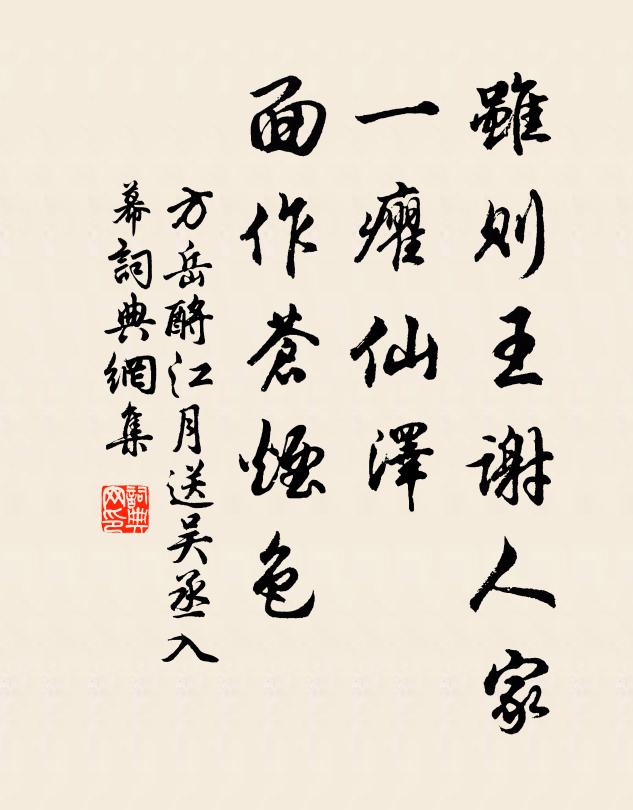 雖則王謝人家
一癯仙澤
面作蒼煙色
方岳酹江月送吳丞入
幕詞典網集
詞典
网印